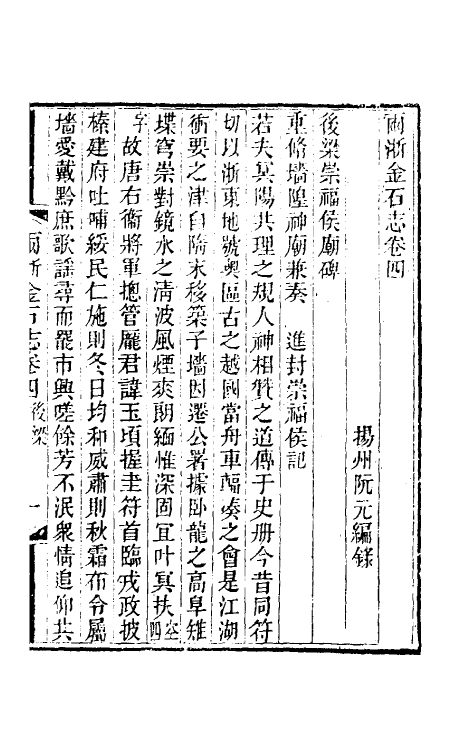 兩浙金石志卷四
揚州阮元編錄
後梁崇福侯廟碑
重脩墻隍神廟兼奏　進封崇福侯記
若夫冥陽共理之規人神相贊之道傳于史册今昔同符
切以浙東地號奧區古之越國當舟車輻湊之會是江湖
衝要之津自隋末移築子墻因遷公署據卧龍之高阜雉
堞穹崇對鏡水之清波風煙爽朗緬惟深固冝叶冥扶空四
字故唐右衞將軍揔管龐君諱玉頃握圭符首臨戎政披
榛建府吐哺綏民仁施則冬日均和威肅則秋霜布令屬
墻愛戴黔庶歌謡尋而罷市興嗟餘芳不泯衆情追仰共
兩浙金石志卷四後梁　一